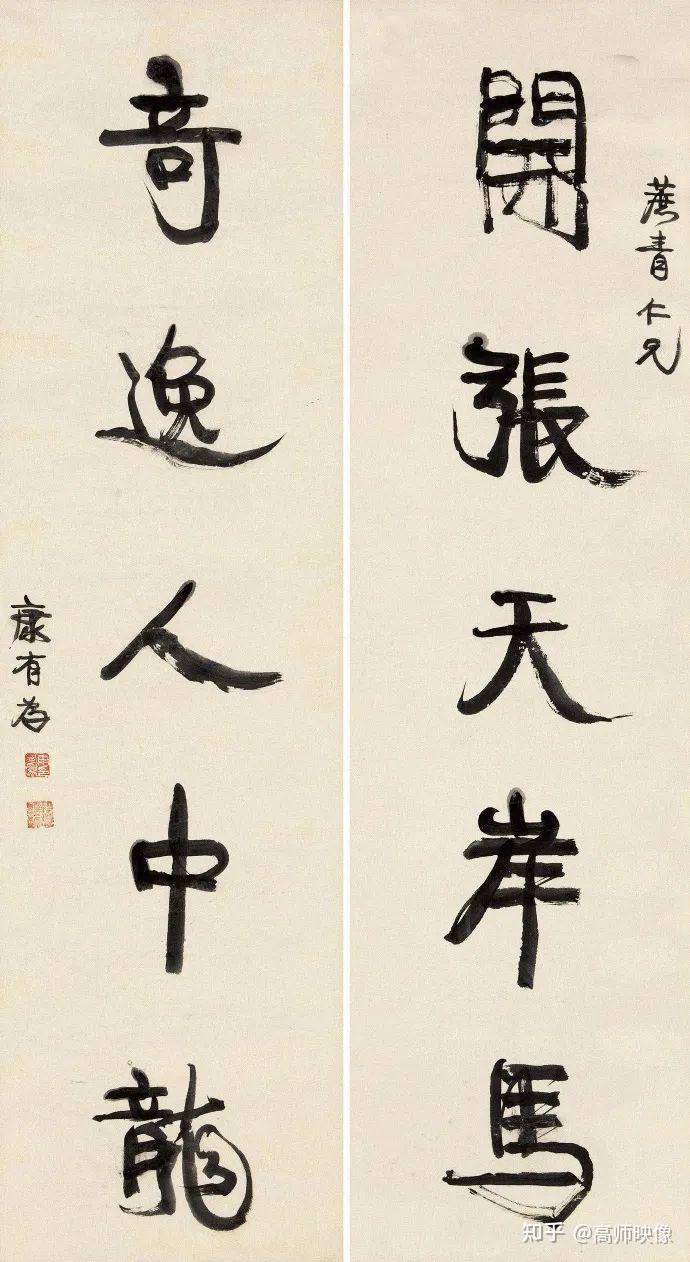 蔫青仁兄
開張天岸馬
奇逸人中龍
康有為
知乎 @高师映像